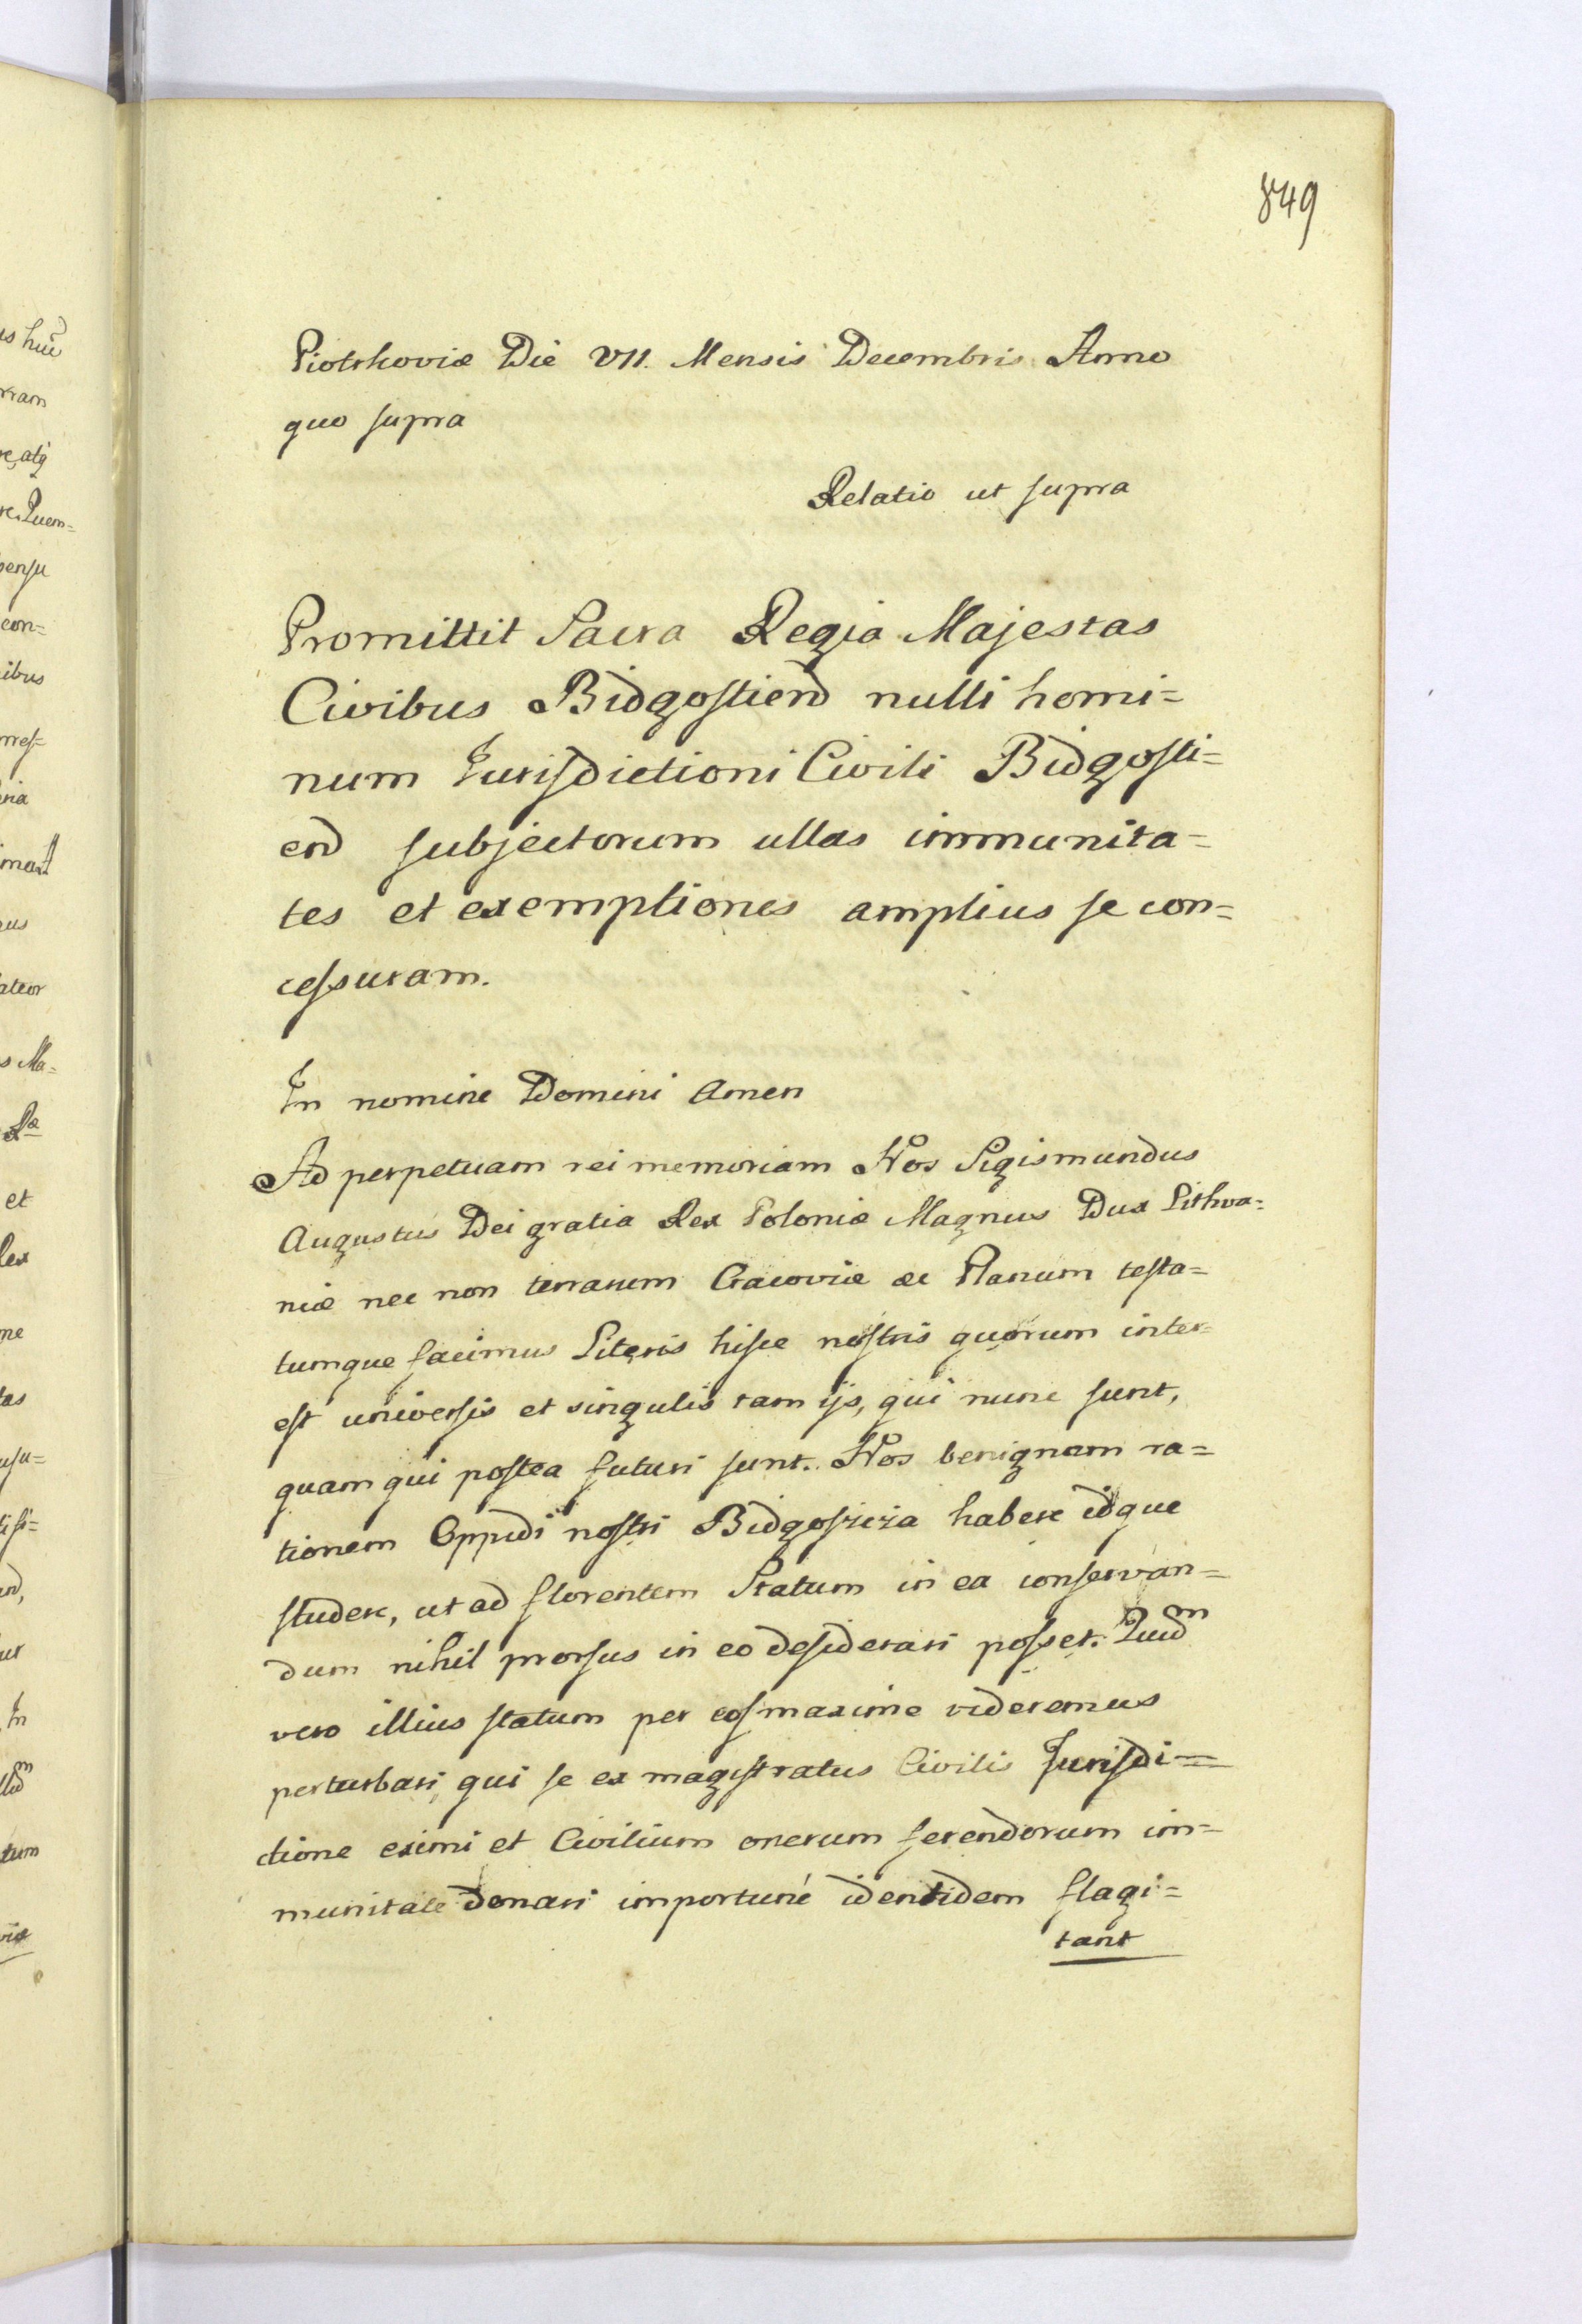 849
Piotrkoviæ Die VII. Mensis Decembris Anno
quo supra
Relatio ut supra
Promittit Sacra Regia Majestas
Civibus Bidgostien nulli homi=
num Jurisdictioni Civili Bidgosti=
en subjectorum ullas immunita=
tes et exemptiones amplius se con=
cessuram.
In nomine Domini Amen
Ad perpetuam rei memoriam Nos Sigismundus
Augustus Dei gratia Rex Poloniæ Magnus Dux Lithva=
niæ nec non terrarum Cracoviæ &c Planum testa=
tumque facimus Literis hisce nostris quorum inter=
est universis et singulis tam ijs, qui nunc sunt,
quam qui postea futuri sunt. Nos benignam ra=
tionem Oppidi nostri Bidgoszcza habere idque
studere, ut ad florentem Statum in ea conservan=
dum nihil prorsus in eo desiderari posset. Quid
vero illius statum per eos maxime videremus
perturbari, qui se ex magistratus Civilis Jurisdi=
ctione eximi et Civilium onerum ferendorum im=
munitate donari importunè identidem flagi=
tant